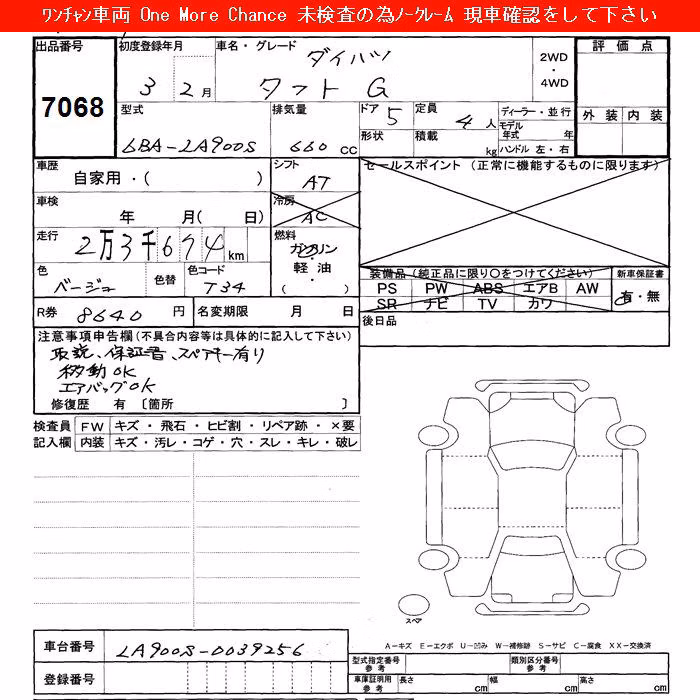 ﾜﾝﾁｬﾝ車両 One More Chance 未検査の為ﾉｰｸﾚｰﾑ 現車確認をして下さい
出品番号 初度登録年月 車名・グレード 評価点
7068 3 2月 ダイハツ タフト G 2WD・4WD
外装 内装
型式 排気量 ドア 5 定員 4人 ディーラー・並行
6BA-LA900S 660cc 形状 積載 kg モデル年式 年
ハンドル 左・右
車歴 シフト セールスポイント (正常に機能するものに限ります)
自家用・( ) AT
車検 冷房
年 月( 日) AC
走行 燃料
2万3千674km ガソリン・軽油・( )
色 色替 色コード 装備品(純正品に限り○をつけてください) 新車保証書
ベージュ T34 PS PW ABS エアB AW 有・無
SR ナビ TV カワ
R券 8640円 名変期限 月 日 後日品
注意事項申告欄(不具合内容等は具体的に記入して下さい)
取説、保証書、スペアキー有り
移動OK
エアバッグOK
修復歴 有〔箇所 〕
検査員 FW キズ・飛石・ヒビ割・リペア跡・×要
記入欄 内装 キズ・汚レ・コゲ・穴・スレ・キレ・破レ
スペア
A-キズ E-エクボ U-凹み W-補修跡 S-サビ C-腐食 XX-交換済
車台番号 LA900S-0039256
型式指定番号 参考 類別区分番号 参考
登録番号 車庫証明用 参考 長さ cm 幅 cm 高さ cm